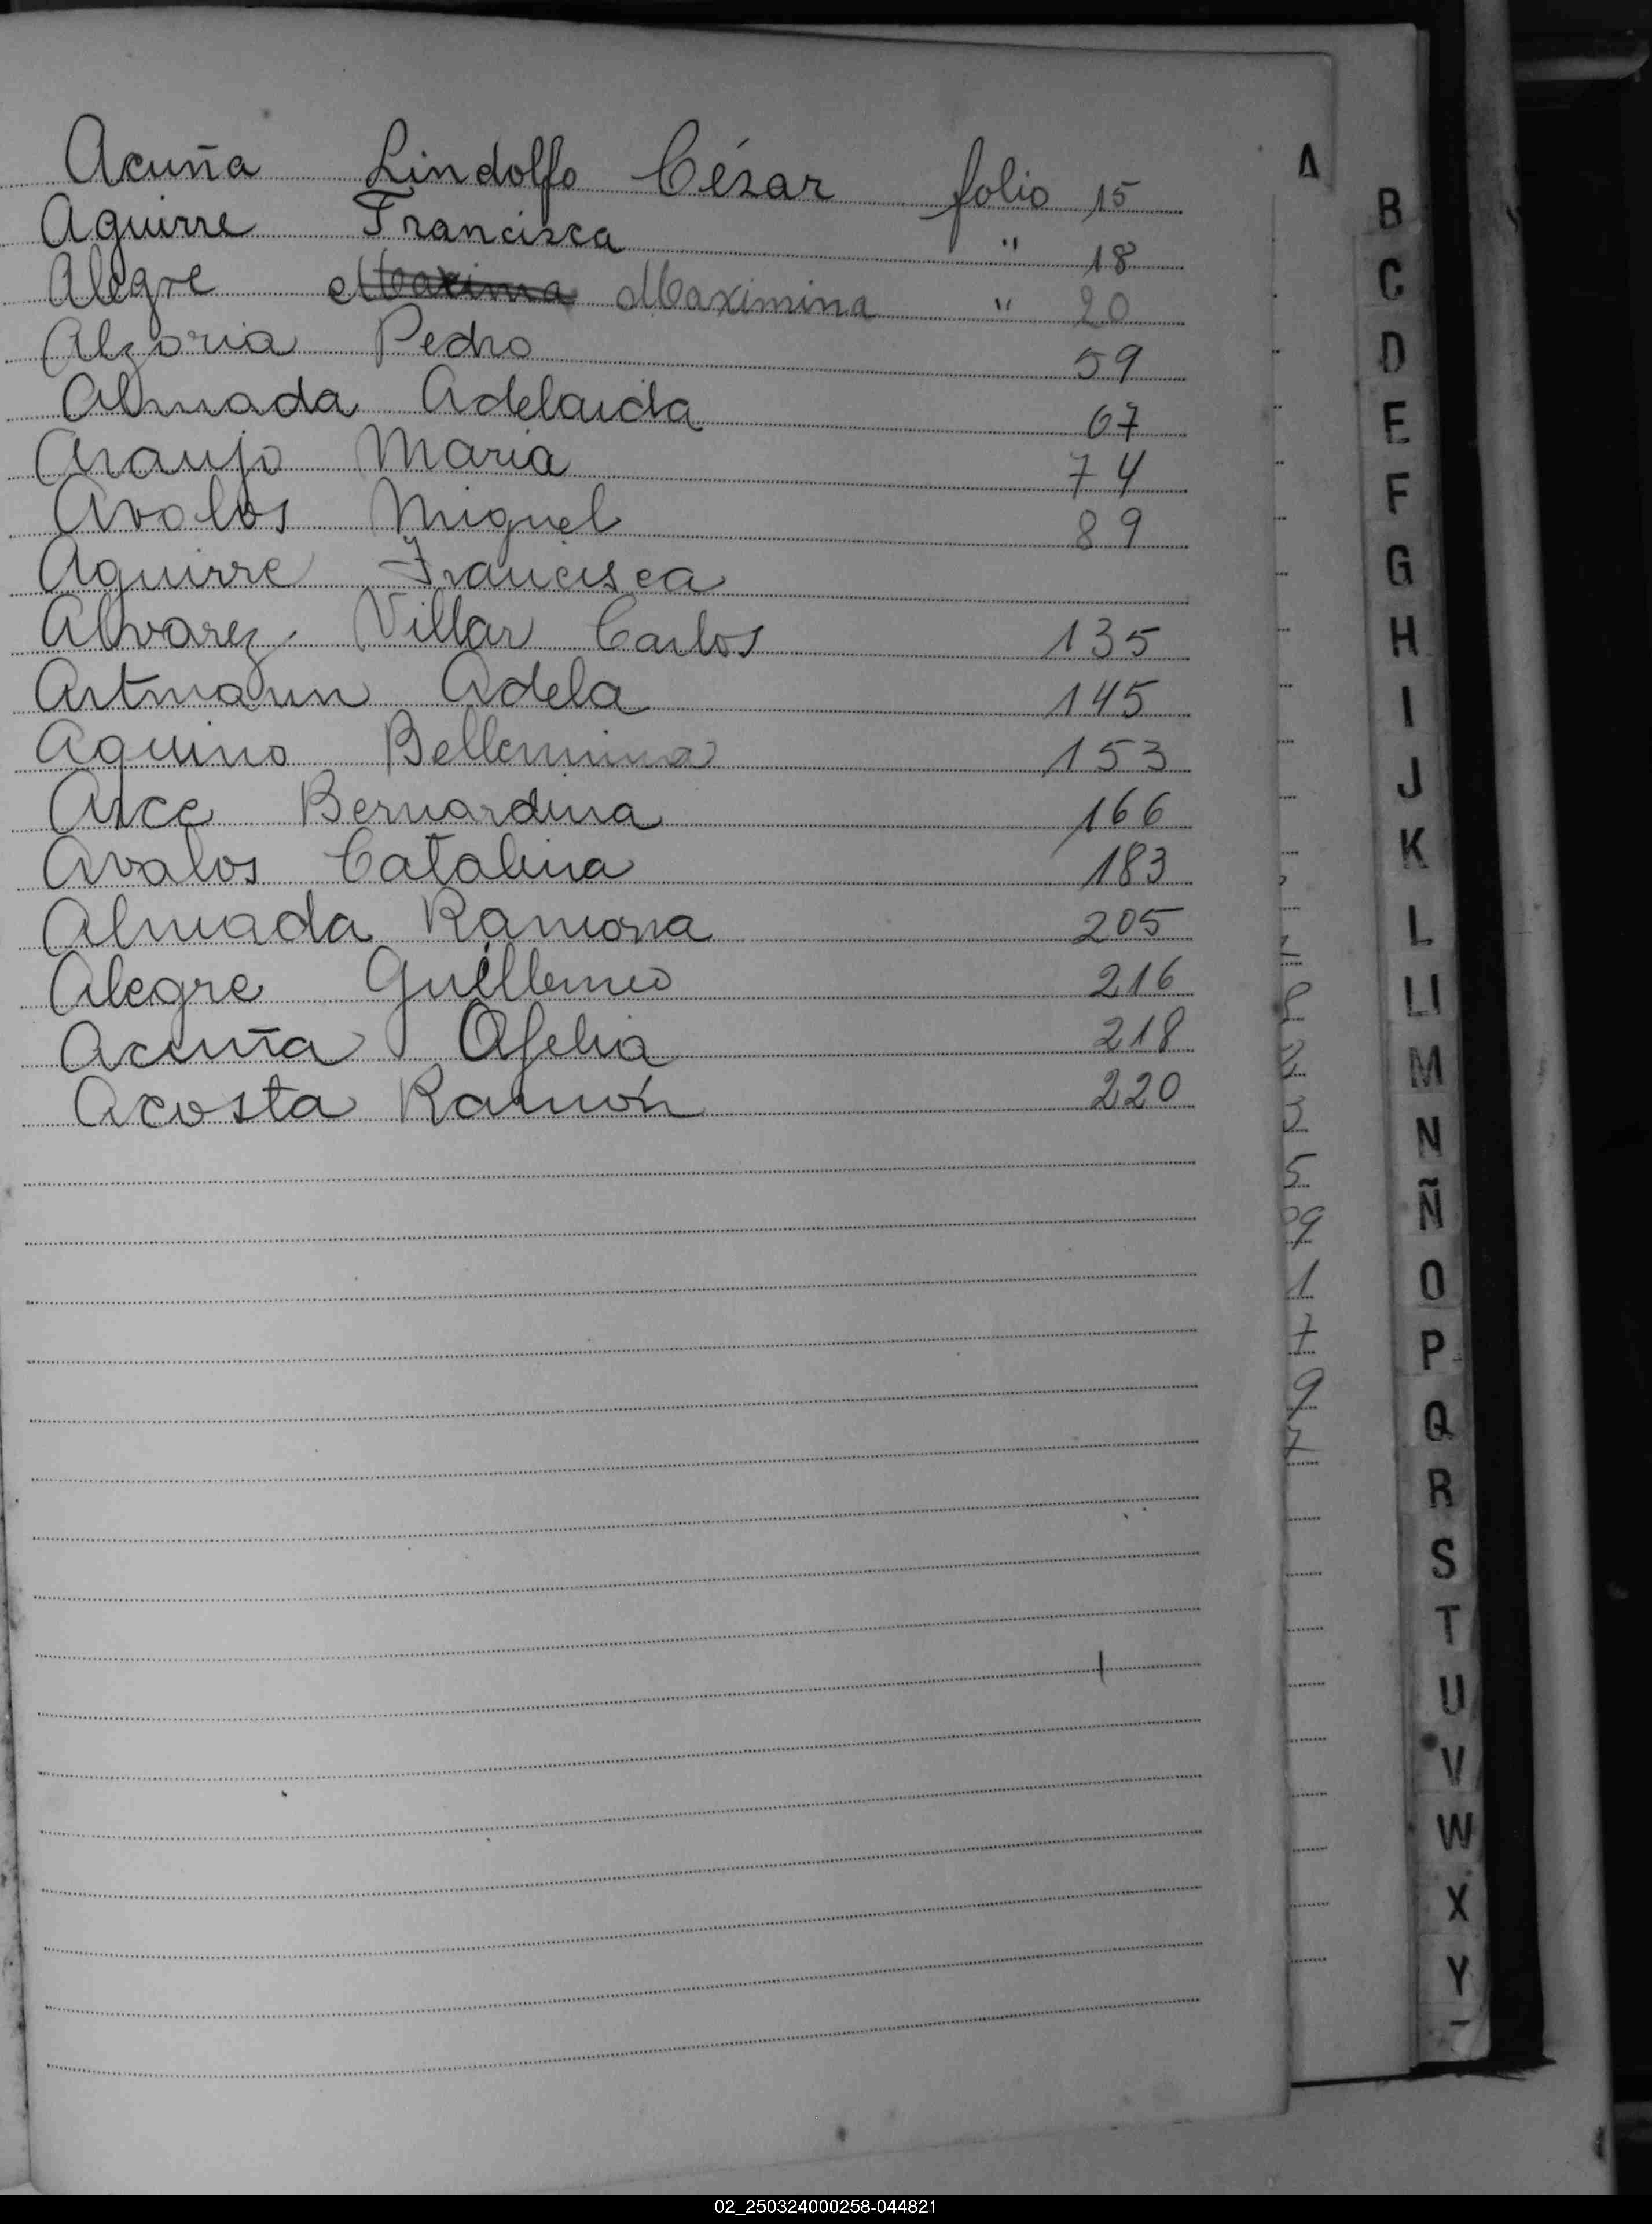 Acuña Lindolfo César folio 15
Aguirre Francisca " 18
Alegre Maxima Maximina " 20
Alzoria Pedro 59
Almada Adelaida 67
Araujo Maria 74
Avalos Miguel 89
Aguirre Francisca
Alvarez Villar Carlos 135
Artmann Adela 145
Aquino Bellermina 153
Arce Bernardina 166
Avalos Catalina 183
Almada Ramona 205
Alegre Guillermo 216
Acuña Ofelia 218
Acosta Ramón 220
A
B
C
D
E
F
G
H
I
J
K
L
Ll
M
N
Ñ
O
P
Q
R
S
T
U
V
W
X
Y
3
5
9
1
7
9
7
02_250324000258-044821